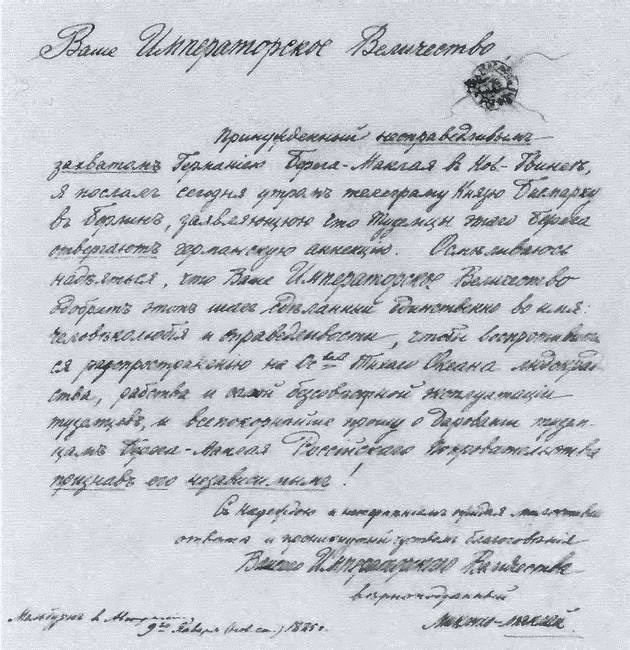 Ваше Императорское Величество,
Принужденный несправедливымъ
захватомъ Германіею Берега-Маклая въ Нов. Гвинеѣ,
я послалъ сегодня утромъ телеграму Князю Бисмарку
въ Берлинъ, заявляющую что туземцы этого Берега
отвергаютъ германскую аннекцію. Осмѣливаюсь
надѣяться, что Ваше Императорское Величество
одобритъ этотъ шагъ сдѣланный единственно во имя:
человѣколюбія и справедливости, чтобы воспротивить
ся распространенію на Ос-ва Тихаго Океана людокрад
ства, рабства и самой безсовѣстной эксплуатаціи
туземцевъ, и всепокорнѣйше прошу о дарованіи тузем-
цамъ Берега-Маклая Россійскаго покровительства
признавъ его независимымъ!
Съ надеждою и нетерпѣніемъ ожидая милостиваго
отвѣта и проникнутый чувствомъ благоговѣнія
Вашего Императорскаго Величества
вѣрноподданный
Миклухо-Маклай.
Мельбурнъ въ
9го Января (нов. ст.) 1885 г.